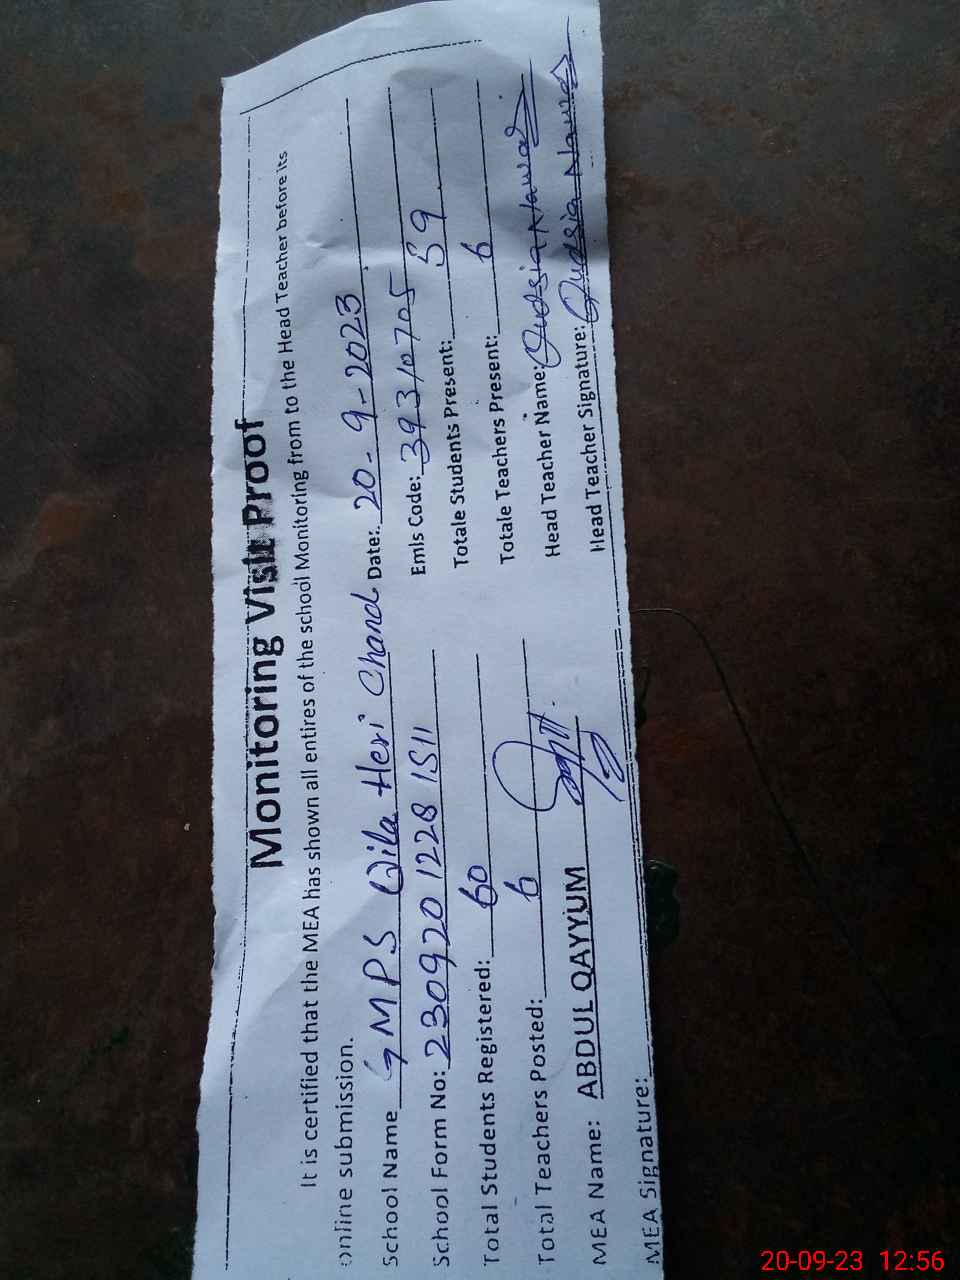 Monitoring Visit Proof
It is certified that the MEA has shown all entires of the school Monitoring from to the Head Teacher before its
online submission.
School Name GMPS Qila Heri Chand Date: 20-9-2023
School Form No: 230920 1228 1511 Emls Code: 39310705
Total Students Registered: 60 Totale Students Present: 59
Total Teachers Posted: 6 Totale Teachers Present: 6
MEA Name: ABDUL QAYYUM Head Teacher Name: Qudsia Nawaz
MEA Signature: Head Teacher Signature: Qudsia Nawaz
20-09-23 12:56